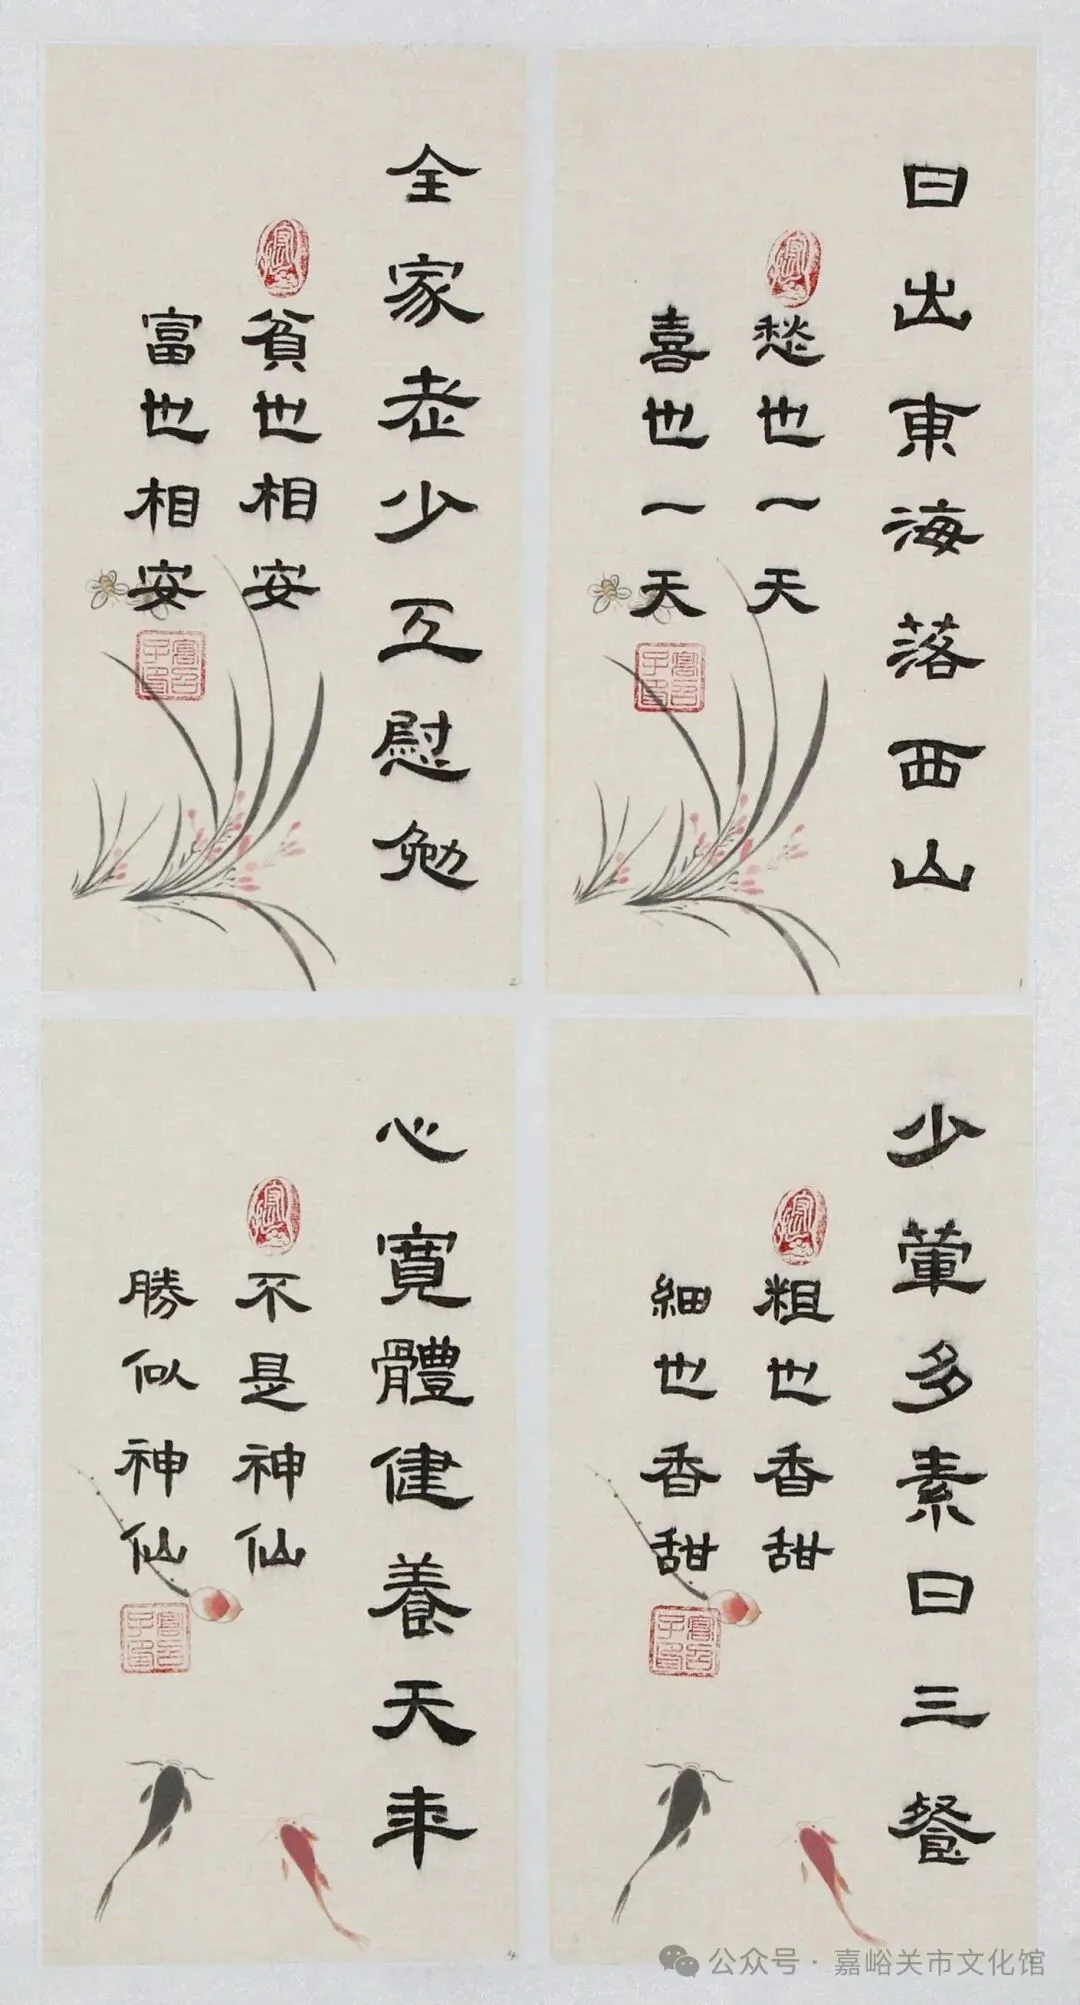 日出東海落西山
愁也一天
喜也一天
1
全家老少互慰勉
貧也相安
富也相安
2
少葷多素日三餐
粗也香甜
細也香甜
心寬體健養天年
不是神仙
勝似神仙
4
公众号·嘉峪关市文化馆